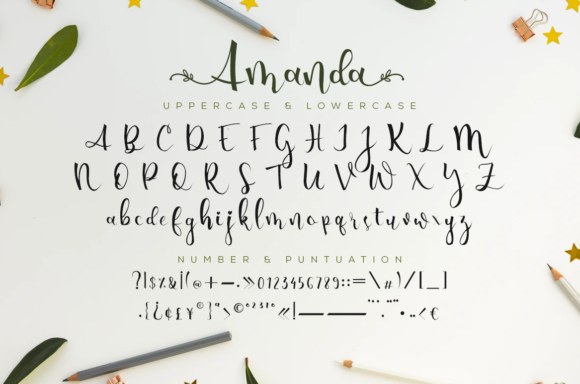 Amanda
UPPERCASE & LOWERCASE
A B C D E F G H I J K L M
N O P Q R S T U V W X Y Z
a b c d e f g h i j k l m n o p q r s t u v w x y z
NUMBER & PUNTUATION
?!$%&¡(@+—.»0123456789::=\#)/[_]